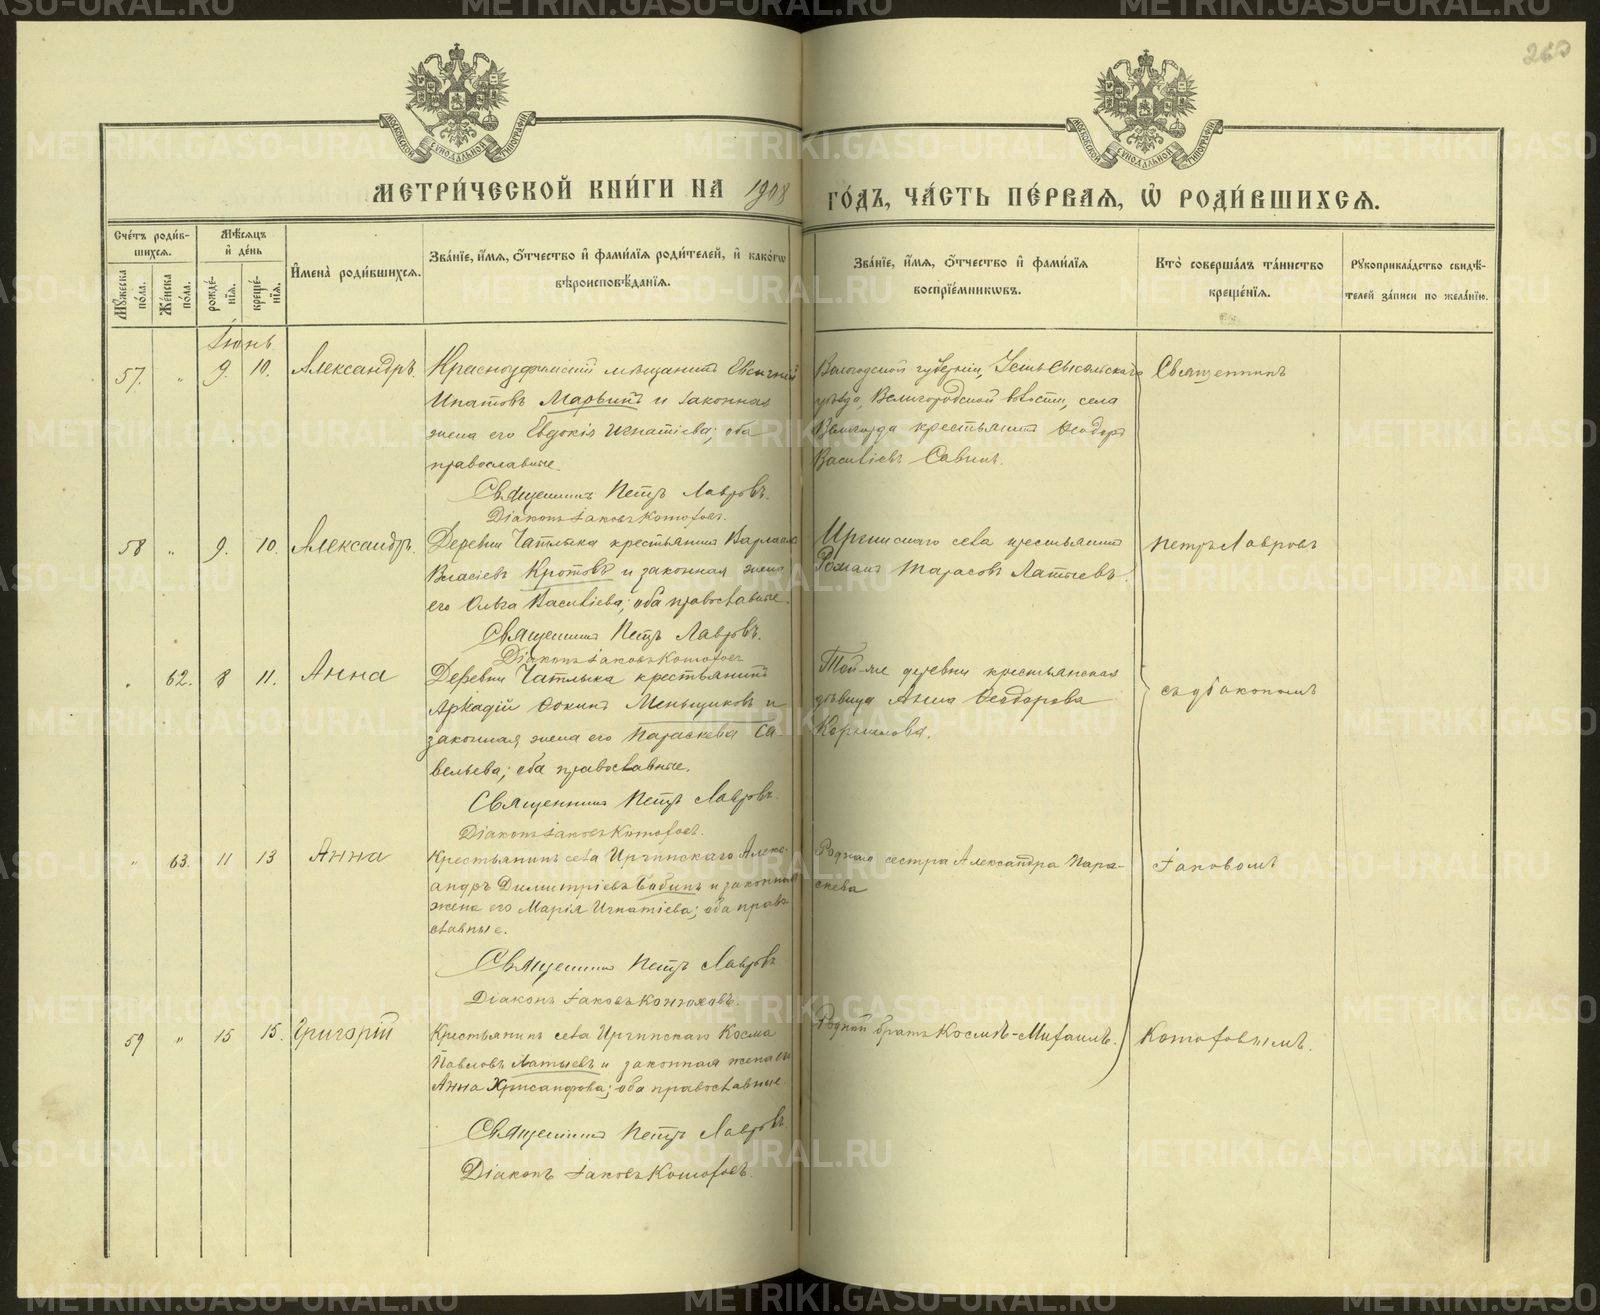 METRIKI.GASO-URAL.RU
263
МОСКОВСКОЙ СУНОДАЛЬНОЙ ТИПОГРАФИИ
МОСКОВСКОЙ СУНОДАЛЬНОЙ ТИПОГРАФИИ
МЕТРИ́ЧЕСКОЙ КНИ́ГИ НА 1908 ГО́ДЪ, ЧА́СТЬ ПЕ́РВАѦ, Ѡ҆ РОДИ́ВШИХСѦ.
Сче́тъ роди́в-
шихсѧ.
Мѣ́сѧцъ
и҆ де́нь
И҆мена̀ роди́вшихсѧ.
Зва́нїе, и҆́мѧ, о҆́тчество и҆ фами́лїѧ роди́телей, и҆ како́гѡ
вѣроисповѣ́данїѧ.
Зва́нїе, и҆́мѧ, о҆́тчество и҆ фами́лїѧ
воспрїе́мникѡвъ.
Кто̀ соверша́лъ та́инство
креще́нїѧ.
Рꙋкоприкла́дство свидѣ́-
телей за́писи по жела́нїю.
Мꙋ́жеска
по́ла.
Же́нска
по́ла.
рожде́-
нїѧ.
креще́-
нїѧ.
Іюнь
57. " 9. 10. Александръ.
Красноуфимскій мѣщанинъ Евсигній
Ипатовъ Марьинъ и законная
жена его Евдокія Игнатіева; оба
православные.
Священникъ Петръ Лавровъ.
Діаконъ Іаковъ Конюховъ.
Вологодской губерніи, Усть Сысольскаго
уѣзда, Вильгородской волости, села
Вильгорда крестьянинъ Ѳеодоръ
Василіевъ Савинъ.
Священникъ
58 " 9. 10. Александръ.
Деревни Чатлыка крестьянинъ Варлаамъ
Власіевъ Кротовъ и законная жена
его Ольга Василіева; оба православные.
Священникъ Петръ Лавровъ.
Діаконъ Іаковъ Конюховъ
Иргинскаго села крестьянинъ
Романъ Тарасовъ Латыевъ.
Петръ Лавровъ
" 62. 8 11. Анна
Деревни Чатлыка крестьянинъ
Аркадій Ѳокинъ Меньщиковъ и
законная жена его Параскева Са-
вельева; оба православные.
Священникъ Петръ Лавровъ.
Діаконъ Іаковъ Конюховъ.
Той же деревни крестьянская
дѣвица Анна Ѳеодорова
Корнилова.
съ діакономъ
" 63. 11 13 Анна
Крестьянинъ села Иргинскаго Алекс-
андръ Димитріевъ Бабинъ и законная
жена его Марія Игнатіева; оба право-
славные.
Священникъ Петръ Лавровъ
Діаконъ Іаковъ Конюховъ.
Родная сестра Александра Пара-
скева
Іаковомъ
59 " 15 15. Григорій
Крестьянинъ села Иргинскаго Косма
Павловъ Латыевъ и законная жена его
Анна Хрисанфова; оба православные.
Священникъ Петръ Лавровъ.
Діаконъ Іаковъ Конюховъ.
Родной братъ Космы-Михаилъ.
Конюховымъ.